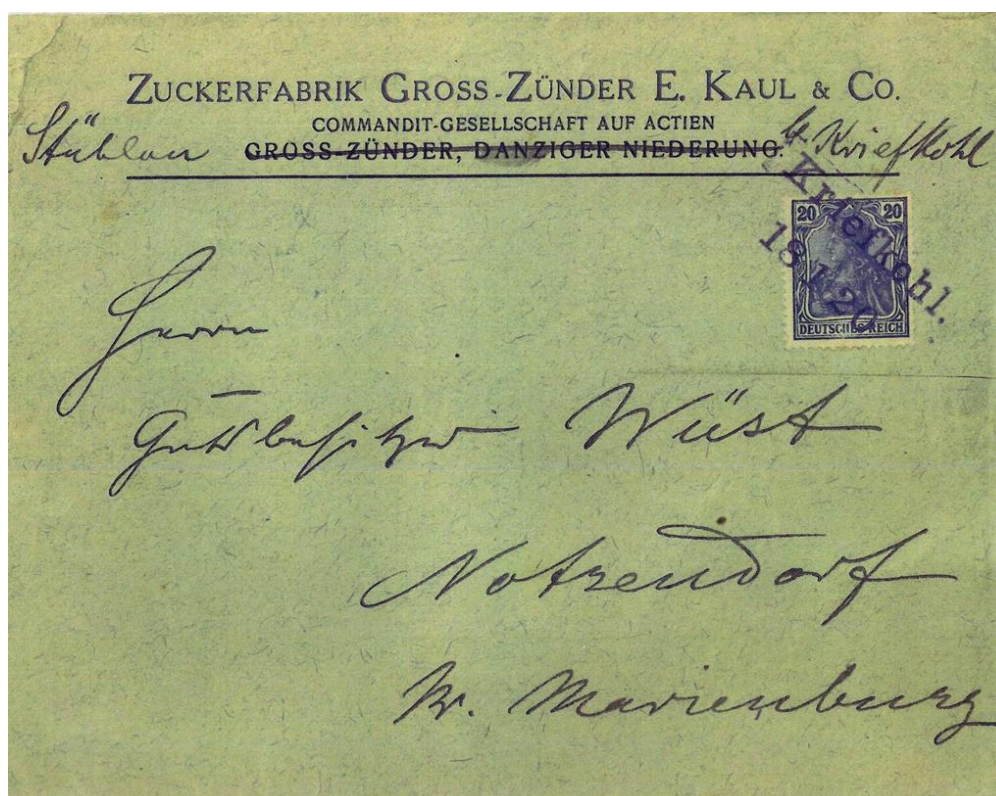 ZUCKERFABRIK GROSS-ZÜNDER E. KAUL & CO.
COMMANDIT-GESELLSCHAFT AUF ACTIEN
Stüblau GROSS-ZÜNDER, DANZIGER NIEDERUNG. b. Kriefkohl
Kriefkohl.
18 1. 20
20 20
DEUTSCHES REICH
Herrn
Gutsbesitzer Wüst
Notzendorf
Kr. Marienburg